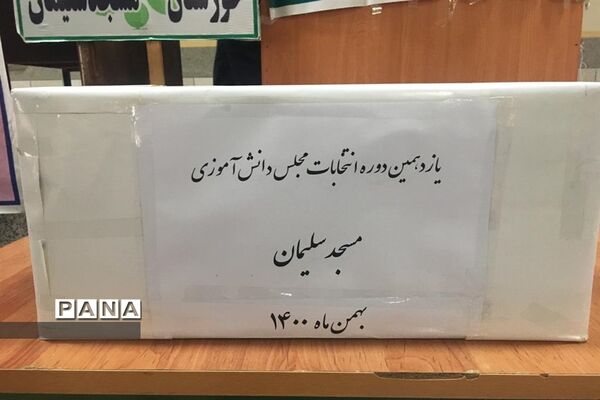 خوزستان مسجدسلیمان
یازدهمین دوره انتخابات مجلس دانش آموزی
مسجد سلیمان
بهمن ماه ۱۴۰۰
PANA